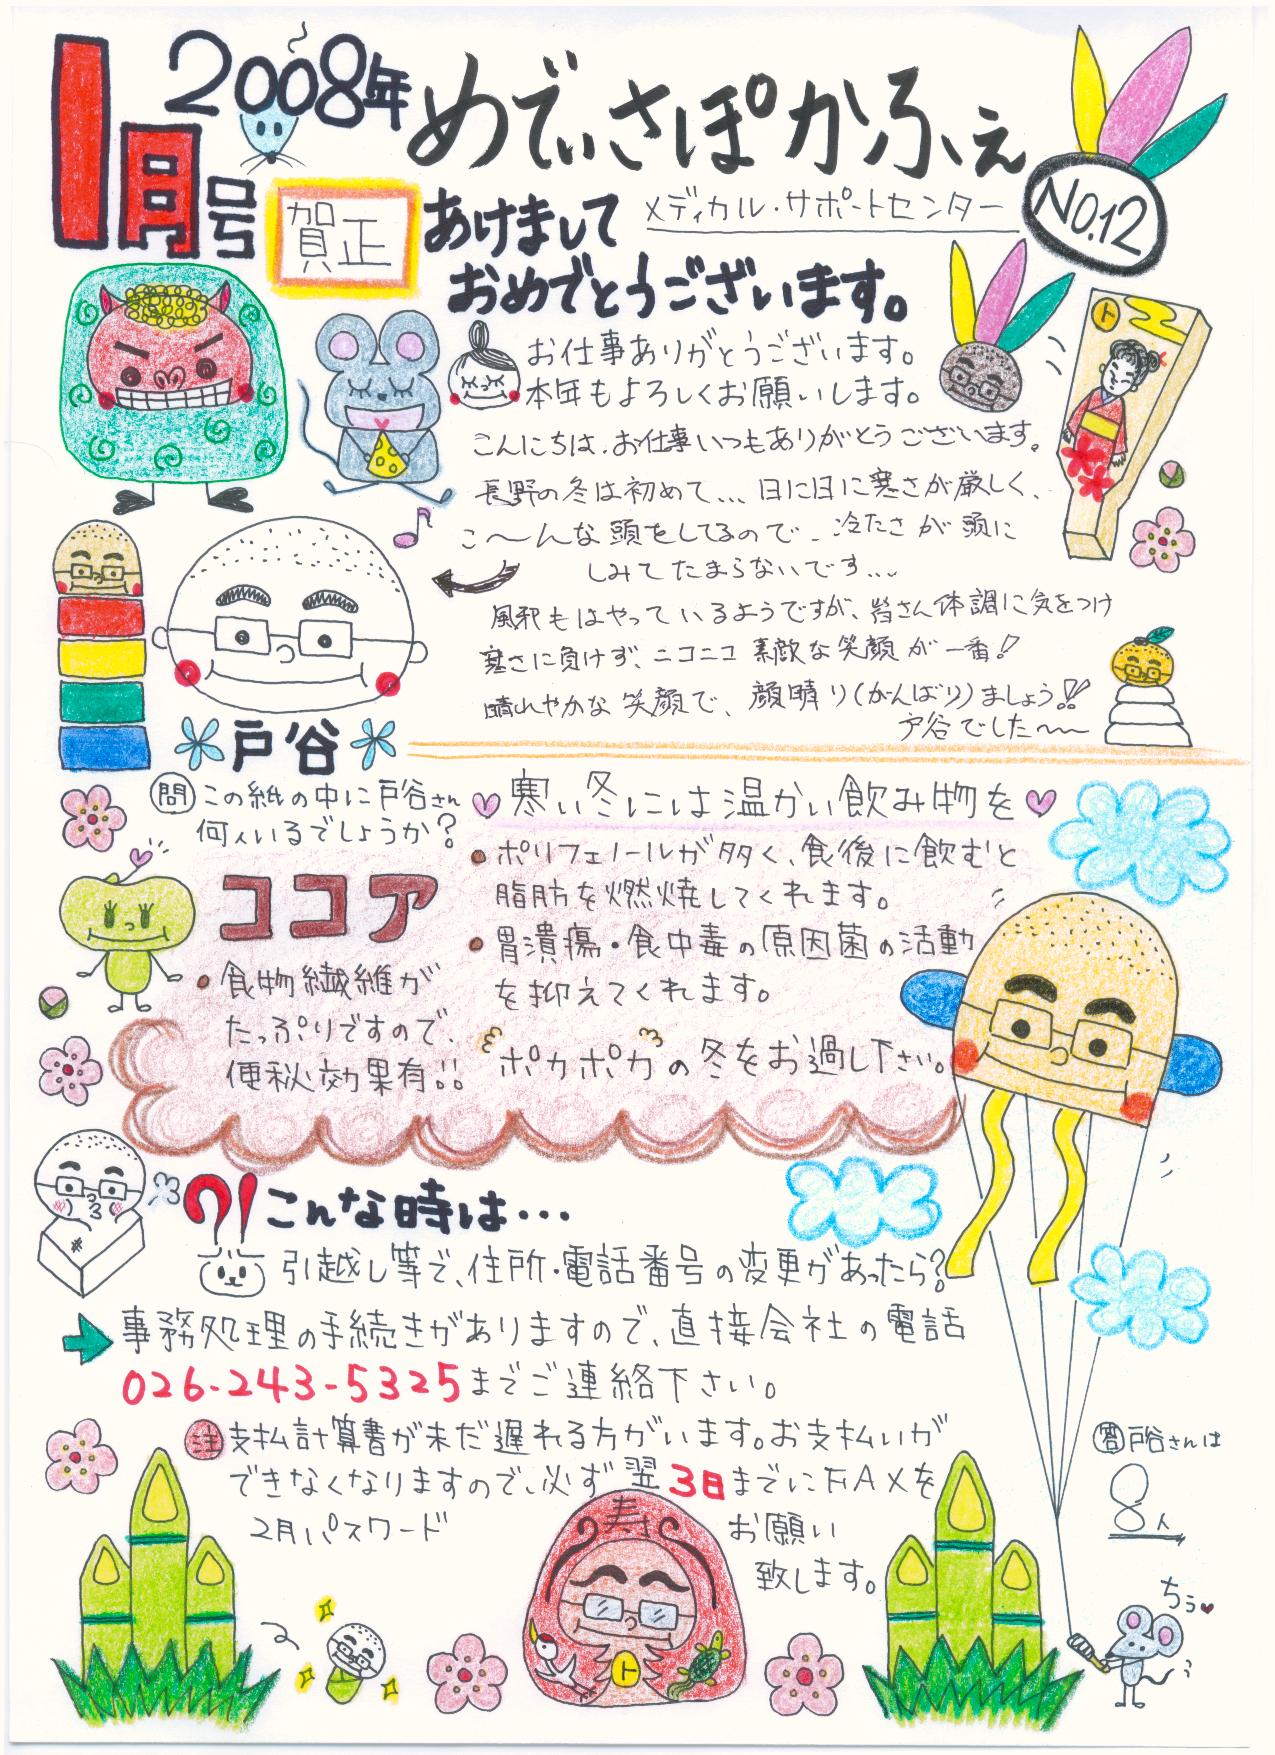 1月号
2008年
めでぃさぽかふぇ
No.12
メディカル・サポートセンター
賀正
あけまして
おめでとうございます。
お仕事ありがとうございます。
本年もよろしくお願いします。
こんにちは、お仕事いつもありがとうございます。
長野の冬は初めて…日に日に寒さが厳しく、
こ〜んな頭をしてるので、冷たさが頭に
しみてたまらないです…
風邪もはやっているようですが、皆さん体調に気をつけ
寒さに負けず、ニコニコ素敵な笑顔が一番!
晴れやかな笑顔で、顔晴り(がんばり)ましょう!!
戸谷でした〜
ト
戸谷
問 この紙の中に戸谷さん
何人いるでしょうか?
寒い冬には温かい飲み物を
ココア
・食物繊維が
たっぷりですので、
便秘効果有!!
・ポリフェノールが多く、食後に飲むと
脂肪を燃焼してくれます。
・胃潰瘍・食中毒の原因菌の活動
を抑えてくれます。
ポカポカの冬をお過し下さい。
?!こんな時は…
引越し等で、住所・電話番号の変更があったら?
事務処理の手続きがありますので、直接会社の電話
026-243-5325までご連絡下さい。
注 支払計算書が未だ遅れる方がいます。お支払いが
できなくなりますので、必ず翌3日までにFAXを
お願い
致します。
2月パスワード
寿
ト
答 戸谷さんは
8人
ちぅ